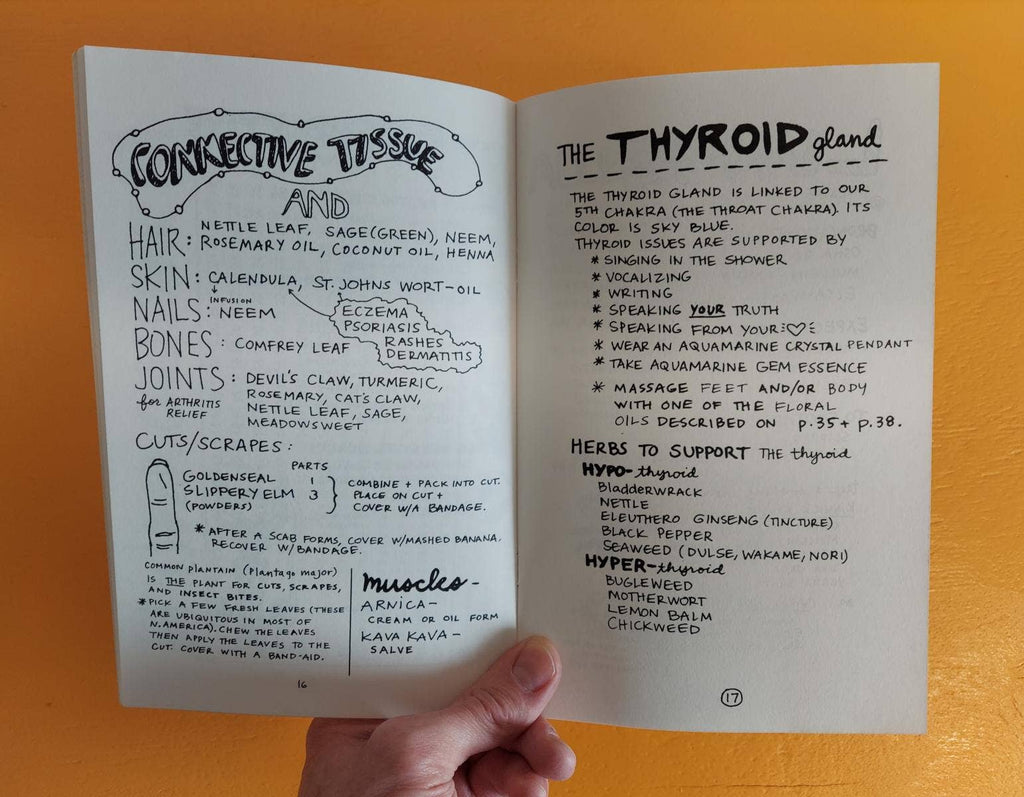 CONNECTIVE TISSUE
AND
HAIR: NETTLE LEAF, SAGE (GREEN), NEEM,
ROSEMARY OIL, COCONUT OIL, HENNA
SKIN: CALENDULA, ST. JOHNS WORT-OIL
INFUSION
ECZEMA
PSORIASIS
RASHES
DERMATITIS
NAILS: NEEM
BONES: COMFREY LEAF
JOINTS: DEVIL'S CLAW, TURMERIC,
for ARTHRITIS
RELIEF
ROSEMARY, CAT'S CLAW,
NETTLE LEAF, SAGE,
MEADOWSWEET
CUTS/SCRAPES:
PARTS
GOLDENSEAL 1
SLIPPERY ELM 3
(POWDERS)
COMBINE + PACK INTO CUT.
PLACE ON CUT +
COVER W/A BANDAGE.
* AFTER A SCAB FORMS, COVER W/MASHED BANANA,
RECOVER W/BANDAGE.
COMMON PLANTAIN (Plantago major)
IS THE PLANT FOR CUTS, SCRAPES,
AND INSECT BITES.
* PICK A FEW FRESH LEAVES (THESE
ARE UBIQUITOUS IN MOST OF
N. AMERICA). CHEW THE LEAVES
THEN APPLY THE LEAVES TO THE
CUT. COVER WITH A BAND-AID.
muscles-
ARNICA-
CREAM OR OIL FORM
KAVA KAVA-
SALVE
16
THE THYROID gland
THE THYROID GLAND IS LINKED TO OUR
5TH CHAKRA (THE THROAT CHAKRA). ITS
COLOR IS SKY BLUE.
THYROID ISSUES ARE SUPPORTED BY
* SINGING IN THE SHOWER
* VOCALIZING
* WRITING
* SPEAKING YOUR TRUTH
* SPEAKING FROM YOUR ♡
* WEAR AN AQUAMARINE CRYSTAL PENDANT
* TAKE AQUAMARINE GEM ESSENCE
* MASSAGE FEET AND/OR BODY
WITH ONE OF THE FLORAL
OILS DESCRIBED ON p.35 + p.38.
HERBS TO SUPPORT THE thyroid
HYPO-thyroid
BladdERWRACK
NETTLE
ELEUTHERO GINSENG (TINCTURE)
BLACK PEPPER
SEAWEED (DULSE, WAKAME, NORI)
HYPER-thyroid
BUGLEWEED
MOTHERWORT
LEMON BALM
CHICKWEED
17